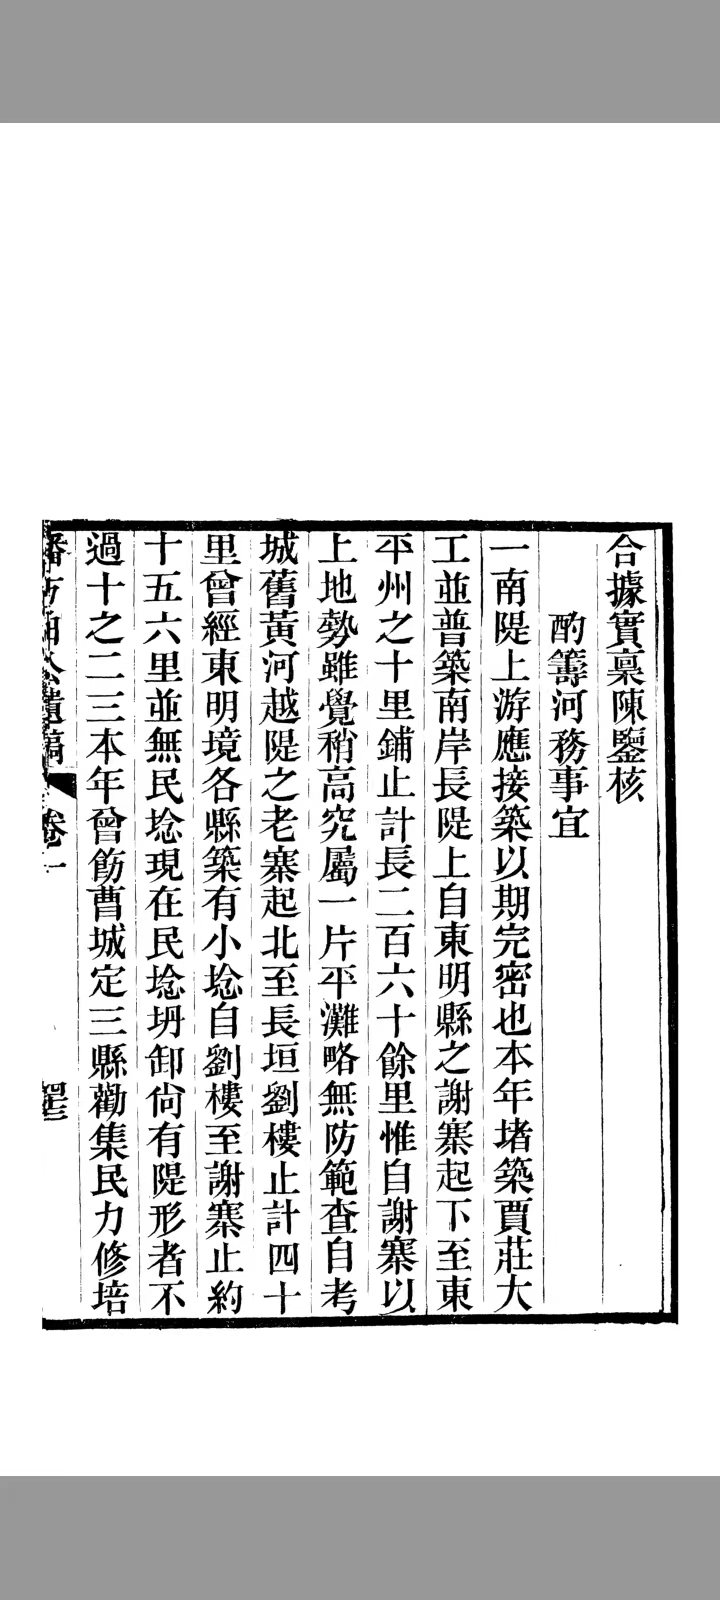 合據實稟陳鑒核
酌籌河務事宜
一南隄上游應接築以期完密也本年堵築賈莊大
工並普築南岸長隄上自東明縣之謝寨起下至東
平州之十里鋪止計長二百六十餘里惟自謝寨以
上地勢雖覺稍高究屬一片平灘略無防範查自考
城舊黃河越隄之老寨起北至長垣劉樓止計四十
里曾經東明境各縣築有小埝自劉樓至謝寨止約
十五六里並無民埝現在民埝坍卸尙有隄形者不
過十之二三本年曾飭曹城定三縣勸集民力修培
公遺稿 卷一